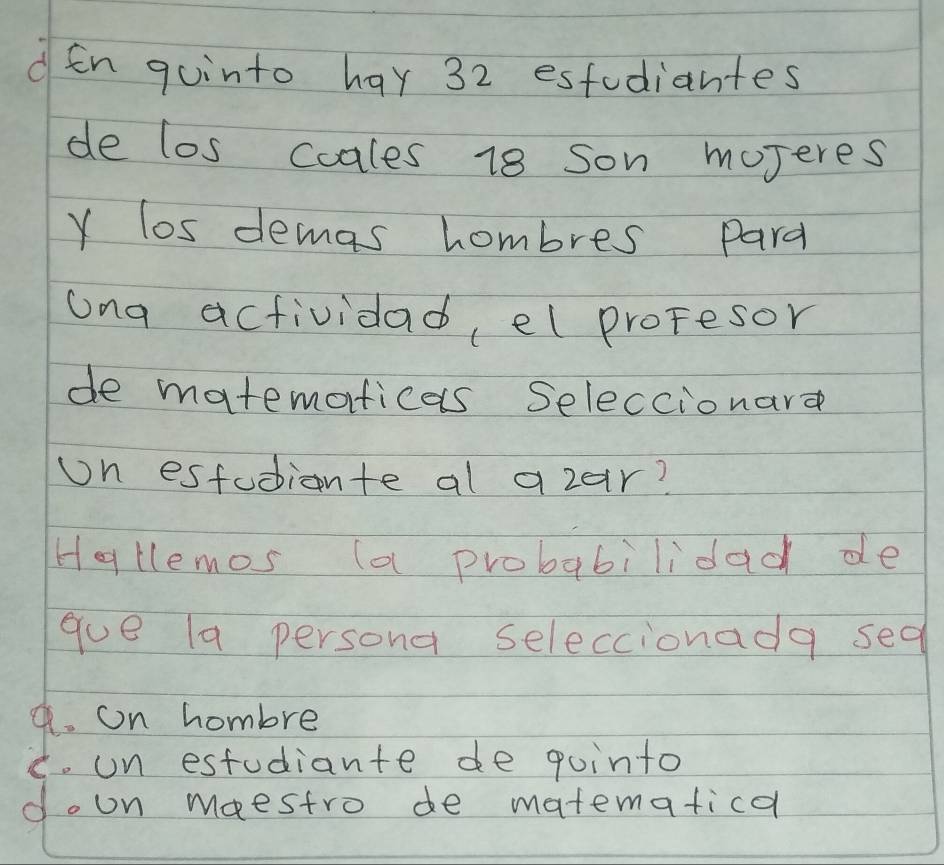 d En quinto hay 32 estudiantes
de los cuales 18 son mujeres
y los demas hombres para
una actividad, el profesor
de matematicas seleccionara
un estudiante al azar?
Hallemos la probabilidad de
que la persona seleccionada sea
a. un hombre
c. un estudiante de quinto
d. un maestro de matematica